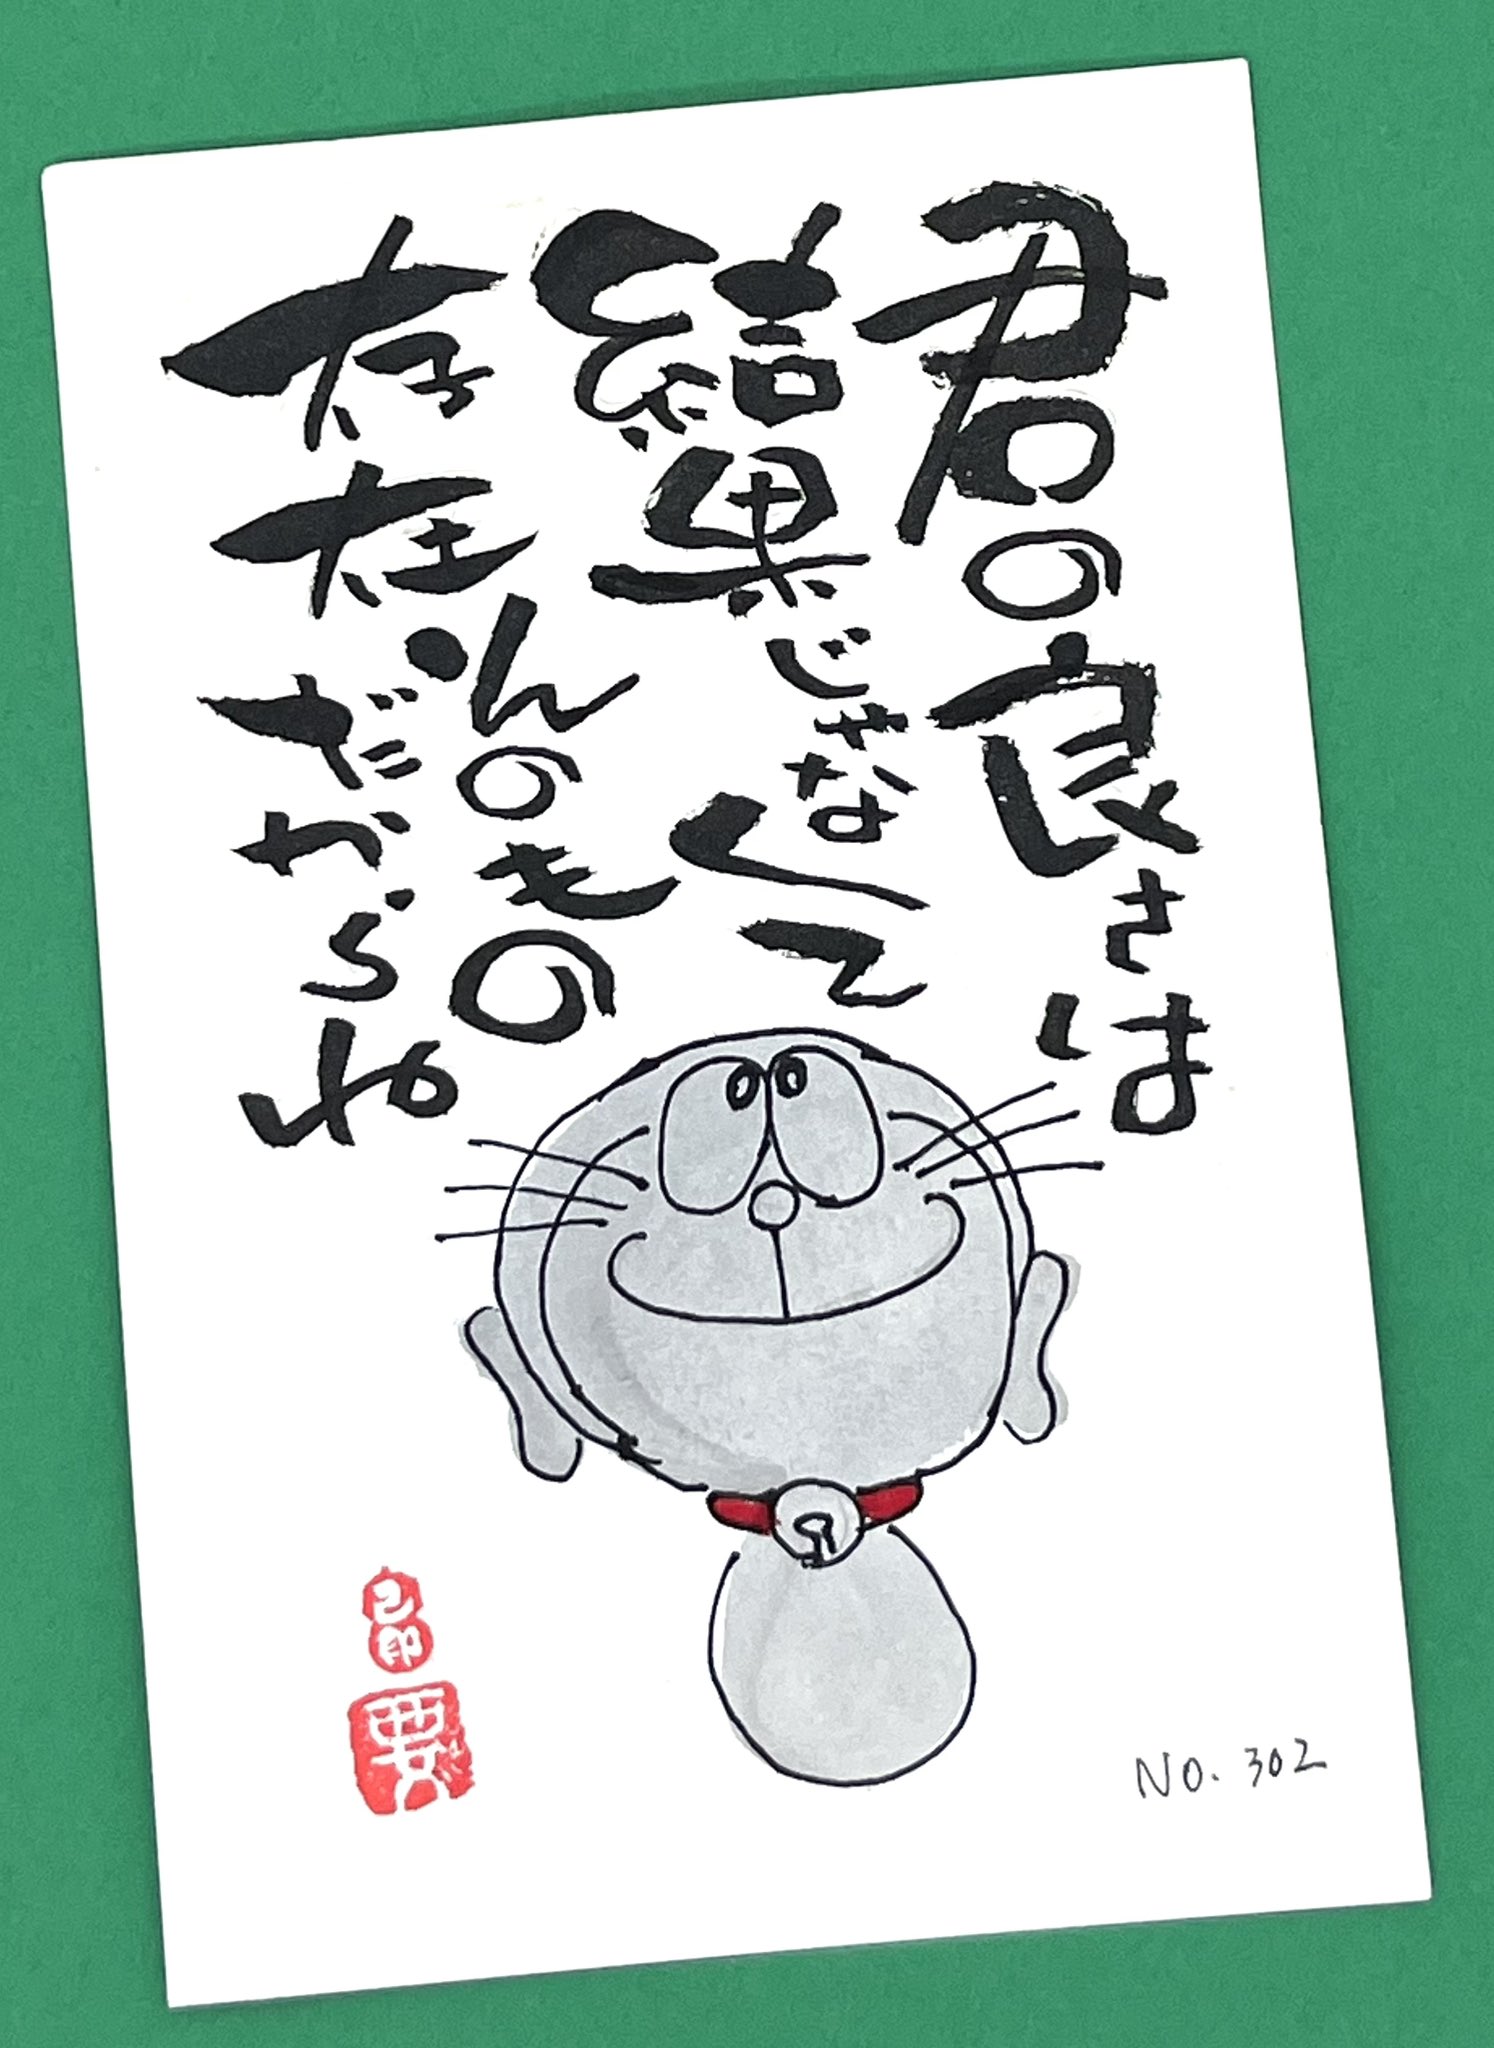 君の良さは
結果じゃなくて
存在そのもの
だからね
己印
要
NO. 302